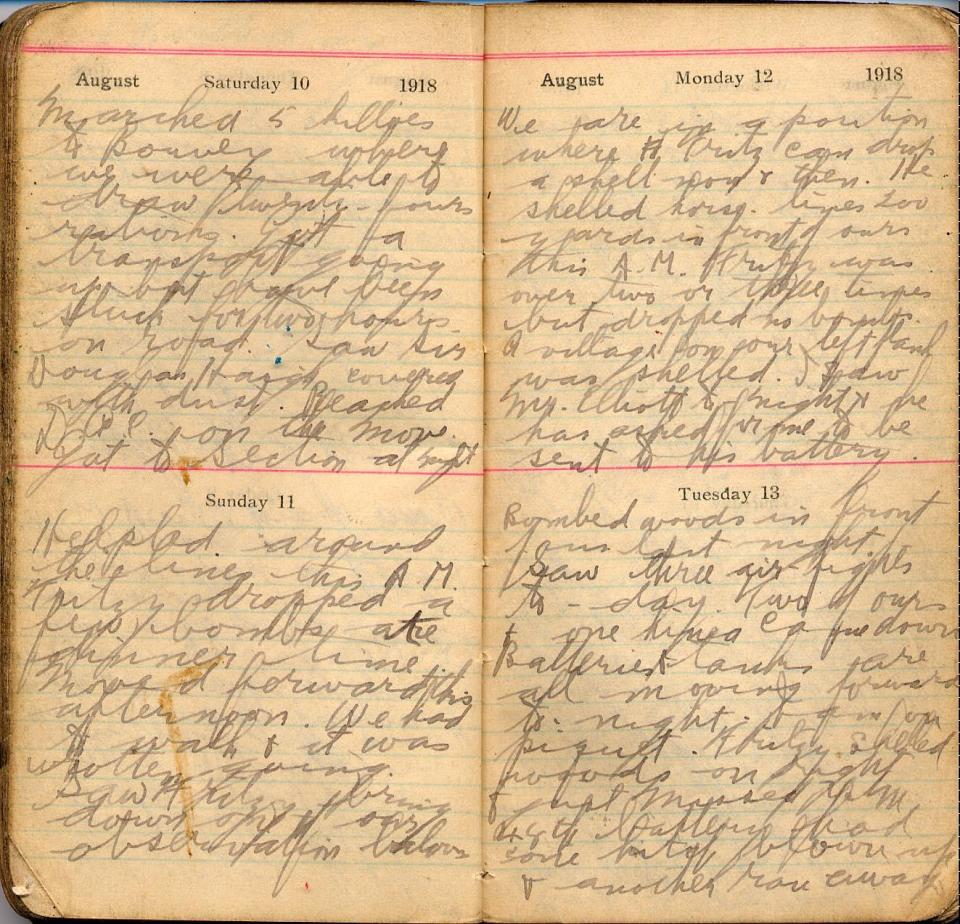 August Saturday 10 1918
Marched 5 killies
to where
we were able to
draw twenty-four
rations. Got a
transport going
up but have been
stuck for two hours
on road. Saw Sir
Douglas Haigh covered
with dust. Reached
D.A.C. on the move.
Got to section at night
Sunday 11
Helped around
the lines this A.M.
Fritzy dropped a
few bombs at
dinner time.
Moved forward this
afternoon. We had
to walk & it was
rotten going.
Saw Fritzy bring
down one of our
observation
August Monday 12 1918
We are in a position
where Fritz can drop
a shell now & then. He
shelled horse lines 200
yards in front of ours
this A.M. Fritzy was
over two or three times
but dropped no bombs.
A village on our left
was shelled. I saw
Mr. Elliott & he
has asked for me to be
sent to his battery.
Tuesday 13
Bombed woods in front
of us last night.
Saw three air fights
to-day. Two of ours
& one came down
Batteries & tanks are
all moving forward
to-night. I am on
piquet. Fritzy shelled
woods on right
& just missed
battery had
some blown up
& another ran away